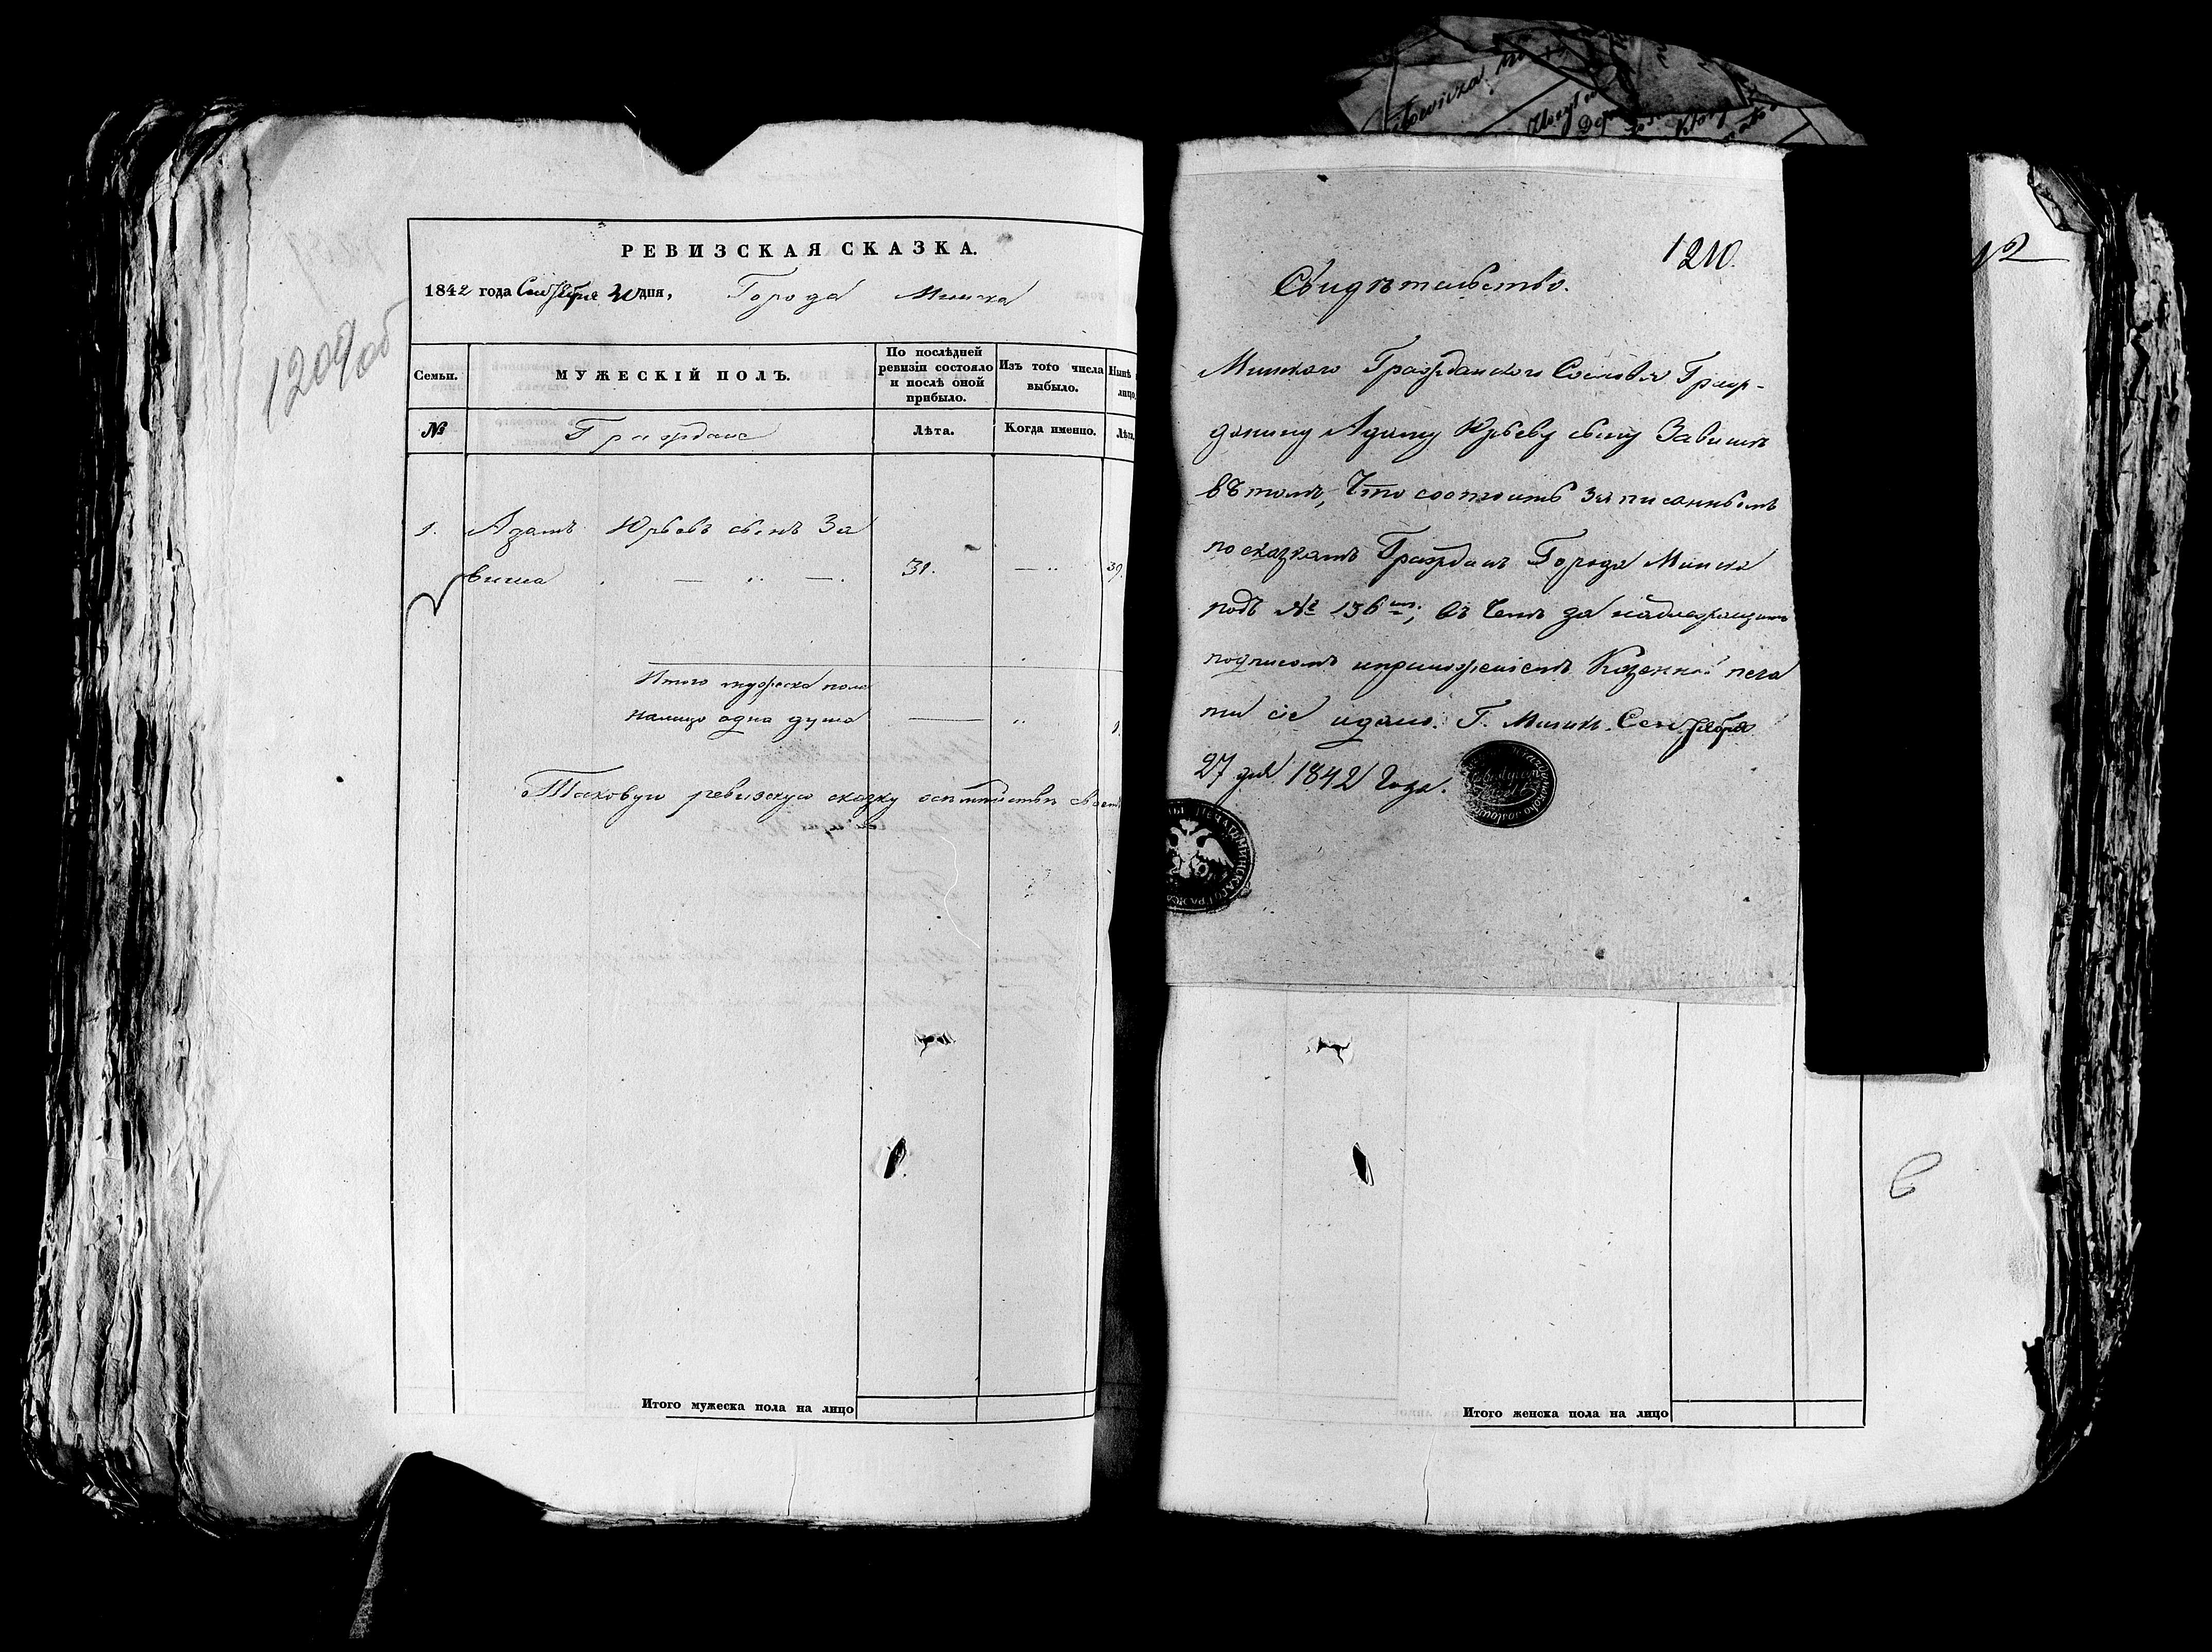 1209об
РЕВИЗСКАЯ СКАЗКА.
1842 года Сентября 30 дня, Города Минска
Семьи.
МУЖЕСКІЙ ПОЛЪ.
По послѣдней ревизіи состояло и послѣ оной прибыло.
Изъ того числа выбыло.
Нынѣ
лицо
№
Граждане
Лѣта.
Когда именно.
Лѣта
1. Адамъ Юрьевъ сынъ За
виша 31. 39.
Итого мужеска пола
налицо одна душа 1.
Таковую ревизскую сказку
Итого мужеска пола на лицо
1210.
Свидѣтельство.
Минского Гражданского Сословія Граж-
данину Адаму Юрьеву сыну Завишѣ
въ томъ, Что состоитъ записаннымъ
по сказкамъ Граждан Города Минска
подъ № 156мъ; въ Чемъ за надлежащимъ
подписомъ и приложеніемъ Казенной печа
ти сіе идано. Г. Минск. Сентября
27 дня 1842 Года.
Итого женска пола на лицо